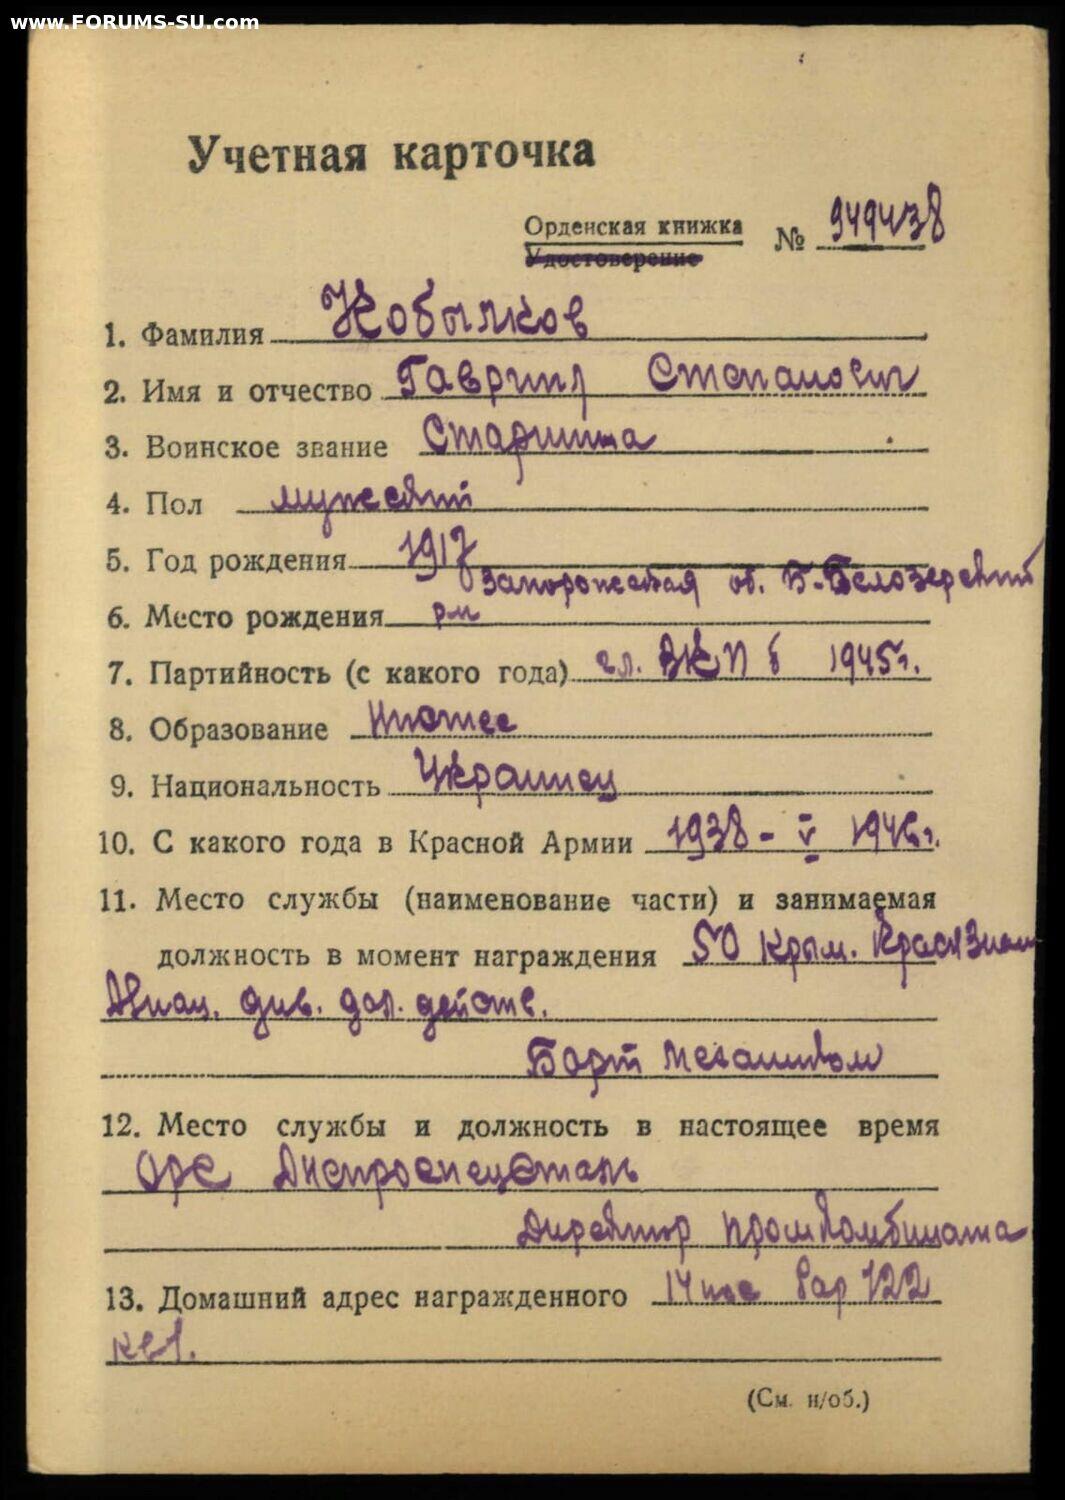 www.FORUMS-SU.com
Учетная карточка
Орденская книжка № 949438
Удостоверение
1. Фамилия Кобылков
2. Имя и отчество Гавриил Степанович
3. Воинское звание Старшина
4. Пол мужской
5. Год рождения 1917
Запорожская об. Б-Белозерский
6. Место рождения рн
7. Партийность (с какого года) чл. ВКП б 1945г.
8. Образование Низшее
9. Национальность Украинец
10. С какого года в Красной Армии 1938 - V 1946г.
11. Место службы (наименование части) и занимаемая
должность в момент награждения 50 Крым. Краснознам
Авиац. див. дал. действ.
Борт механиком
12. Место службы и должность в настоящее время
Орс Днепроспецсталь
Директор промкомбината
13. Домашний адрес награжденного 14 пос бар 122
кв 1.
(См. н/об.)